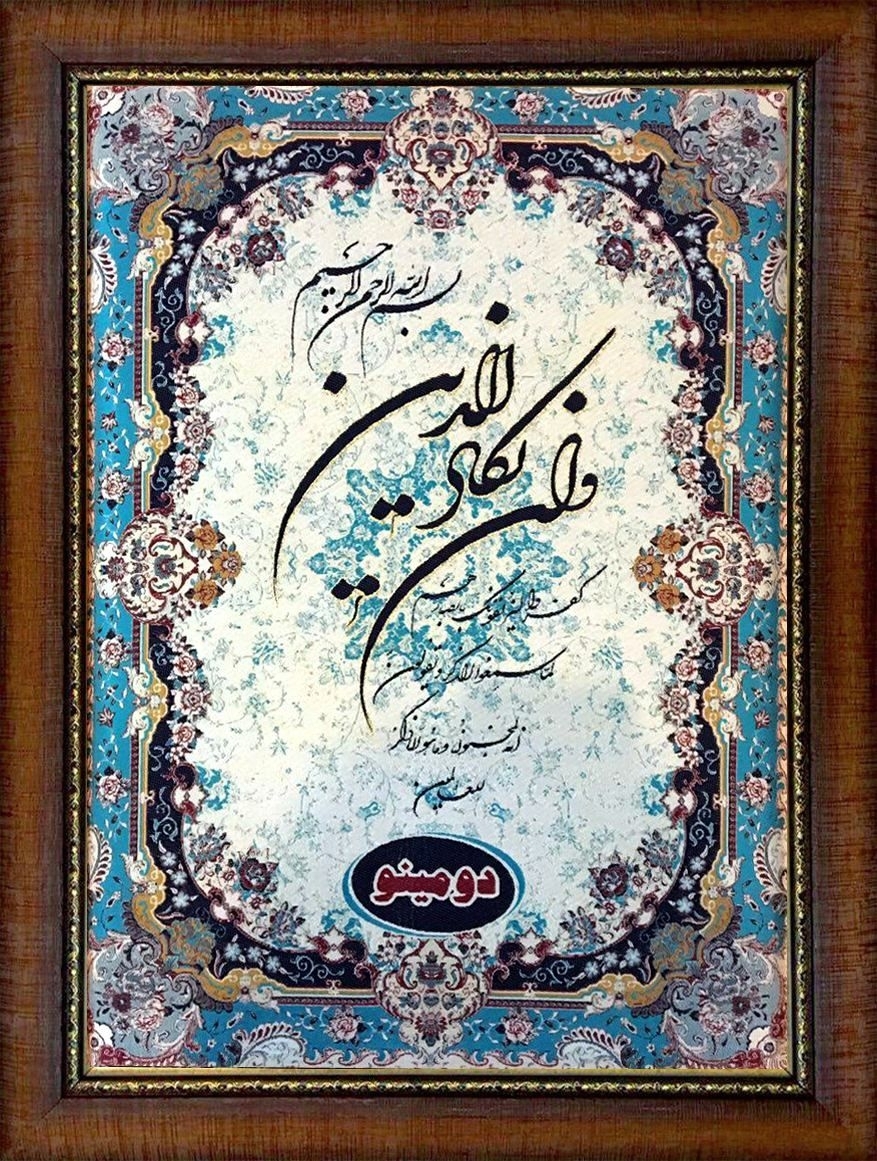 بسم الله الرحمن الرحیم
وان یکاد الذین
کفروا لیزلقونک بابصارهم
لما سمعوا الذکر و یقولون
انه لمجنون و ما هو الا ذکر
للعالمین
دومینو